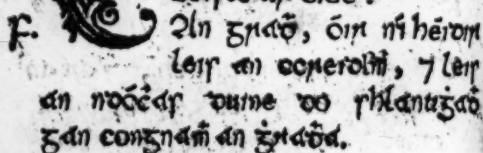 F. An graḋ, óir ní héidir
leis an ccreidiṁ, ⁊ leis
an ndóċas duine do shlanuġaḋ
gan congnaṁ an ġraḋa.